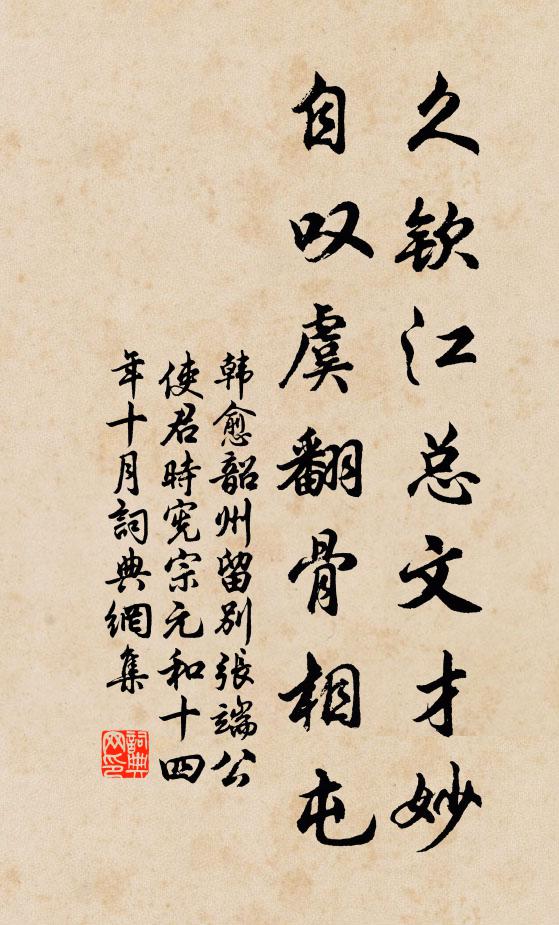 久钦江总文才妙
自叹虞翻骨相屯
韩愈韶州留别張端公
使君時宪宗元和十四
年十月詞典網集
詞典
网印